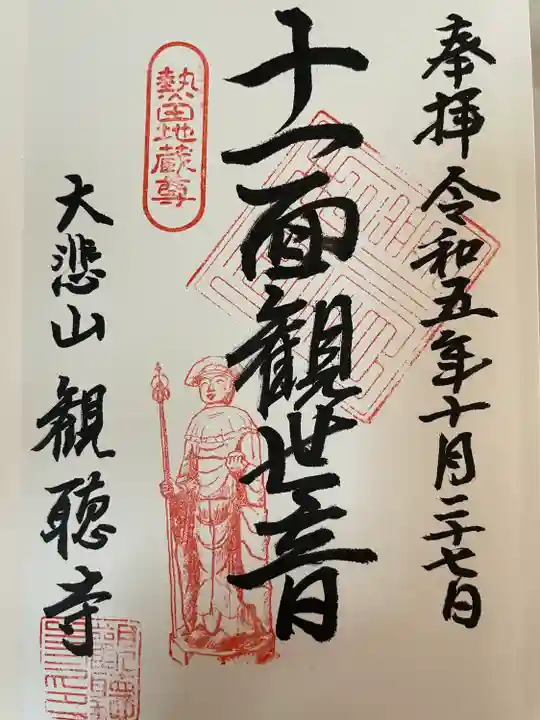 奉拝令和五年十月二十七日
十一面観世音
熱田地蔵尊
大悲山観聴寺